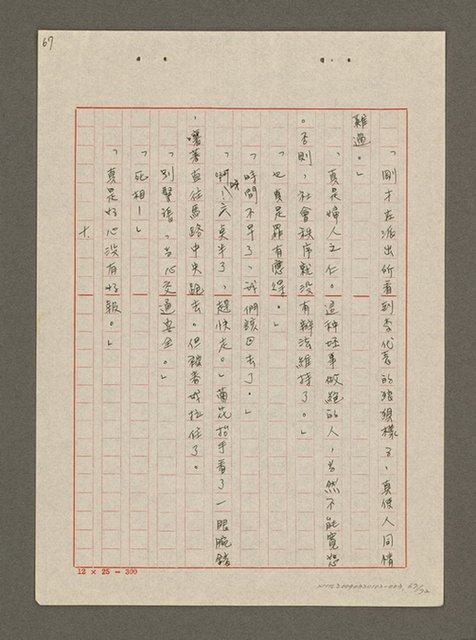 67
「剛才在派出所看到李代表的狼狽樣子,真使人同情
難過。」
「真是婦人之仁。這種壞事做絕的人,當然不能寬恕
。否則,社會秩序就沒有辦法維持了。」
「也真是罪有應得。」
「時間不早了,我們該回去了。」
「啊!六點半了,趕快走。」蘭花抬手看了一眼腕錶
,嚷著直往馬路中央跑去。但被着我拉住了。
「別緊張,當心交通安全。」
「死相!」
「真是好心沒有好報。」
十、
12 × 25 = 300
67/72